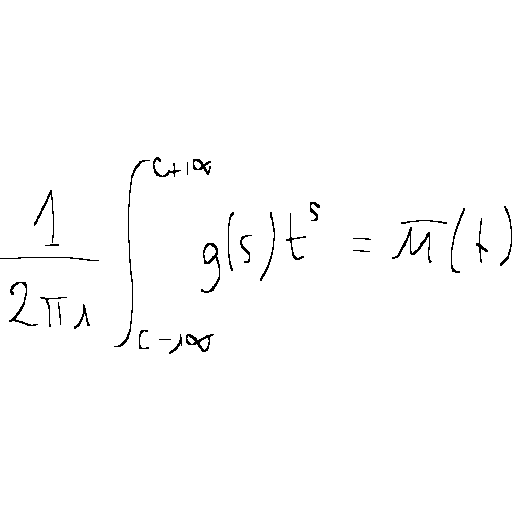 \frac{1}{2\pi i} \int_{c-i\infty}^{c+i\infty} g(s) t^s = \overline{u}(t)